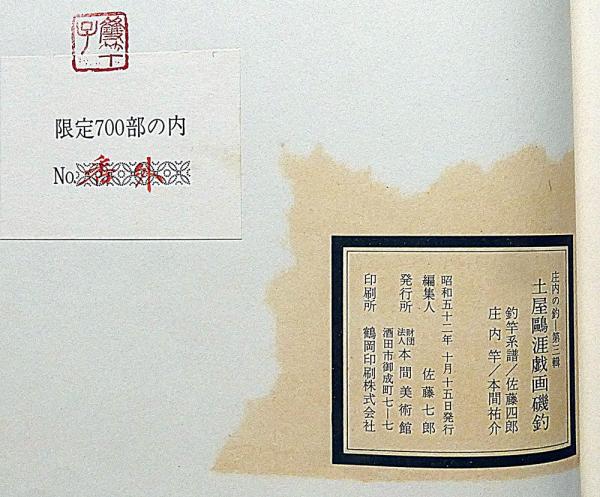 限定700部の内
No. 番外
庄内の釣―第三輯
土屋鷗涯戯画磯釣
釣竿系譜／佐藤四郎
庄内竿／本間祐介
昭和五十二年十月十五日発行
編集人 佐藤七郎
発行所 財団法人 本間美術館
酒田市御成町七―七
印刷所 鶴岡印刷株式会社